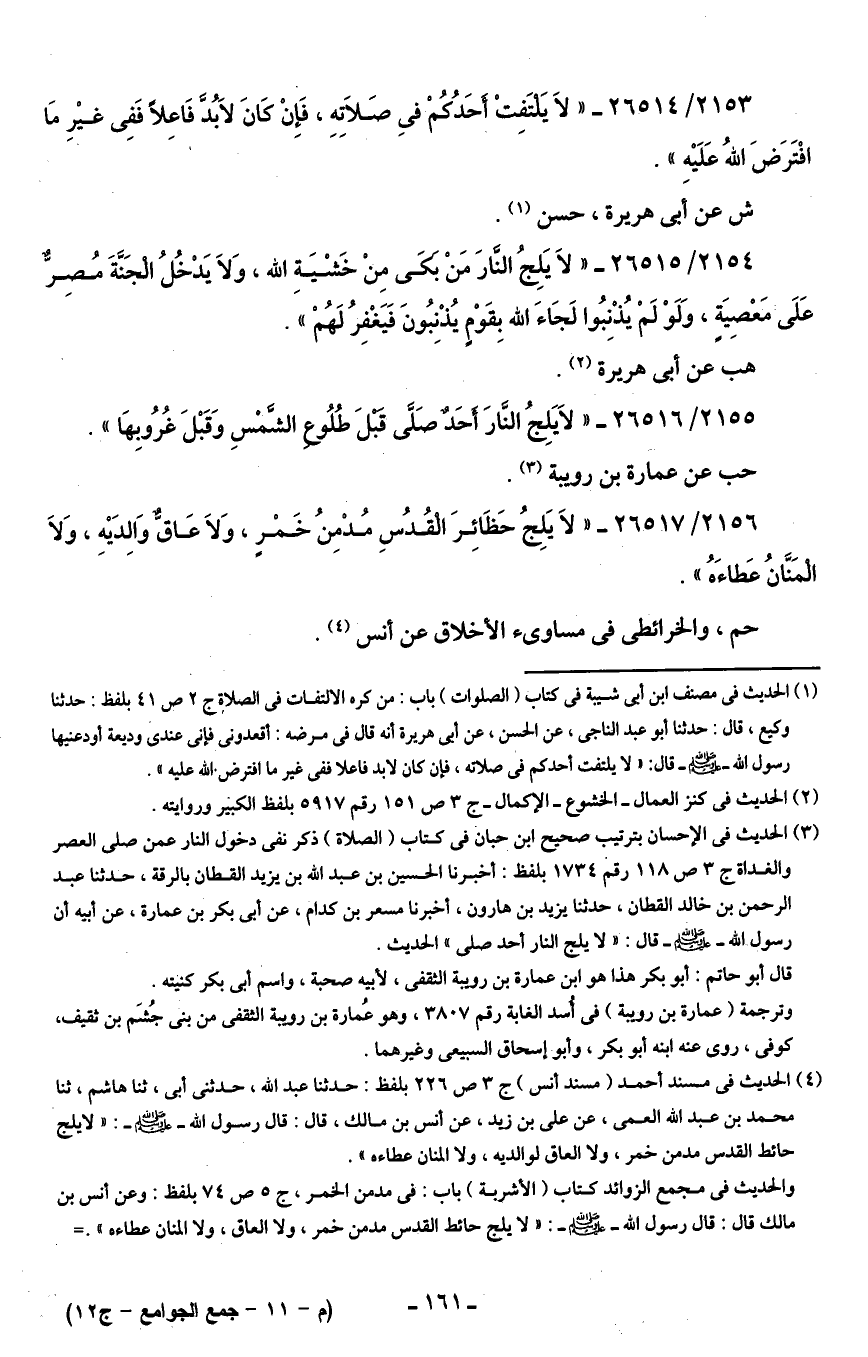 ٢٦٥١٤/٢١٥٣ ـ « لاَ يَلْتَفِتْ أَحَدُكُمْ فى صَلاَتِهِ ، فَإِنْ كَانَ لاَبُدَّ فَاعِلاً فَفِى غَيْرِ مَا
افْتَرَضَ اللهُ عَلَيْهِ » .
ش عن أبى هريرة ، حسن (١) .
٢٦٥١٥/٢١٥٤ ـ « لاَ يَلِجُ النَّارَ مَنْ بَكَى مِنْ خَشْيَةِ الله ، وَلاَ يَدْخُلُ الْجَنَّةَ مُصِرٌّ
عَلَى مَعْصِيَةٍ ، وَلَوْ لَمْ يُذْنِبُوا لَجَاءَ الله بِقَوْمٍ يُذْنِبُونَ فَيَغْفِرُ لَهُمْ » .
هب عن أبى هريرة (٢) .
٢٦٥١٦/٢١٥٥ ـ « لاَيَلِجُ النَّارَ أَحَدٌ صَلَّى قَبْلَ طُلُوعِ الشَّمْسِ وَقَبْلَ غُرُوبِهَا » .
حب عن عمارة بن رويبة (٣) .
٢٦٥١٧/٢١٥٦ ـ « لاَ يَلِجُ حَظَائِرَ الْقُدُسِ مُدْمِنُ خَمْرٍ ، وَلاَ عَاقٌّ وَالِدَيْهِ ، وَلاَ
الْمَنَّانُ عَطَاءَهُ » .
حم ، والخرائطى فى مساوىء الأخلاق عن أنس (٤) .
(١) الحديث فى مصنف ابن أبى شيبة فى كتاب ( الصلوات ) باب : من كره الالتفات فى الصلاة ج ٢ ص ٤١ بلفظ : حدثنا
وكيع ، قال : حدثنا أبو عبد الناجى ، عن الحسن ، عن أبى هريرة أنه قال فى مرضه : أقعدونى فإنى عندى وديعة أودعنيها
رسول الله ـ ﷺ ـ قال: « لا يلتفت أحدكم فى صلاته ، فإن كان لابد فاعلا ففى غير ما افترض الله عليه » .
(٢) الحديث فى كنز العمال ـ الخشوع ـ الإكمال ـ ج ٣ ص ١٥١ رقم ٥٩١٧ بلفظ الكبير وروايته .
(٣) الحديث فى الإحسان بترتيب صحيح ابن حبان فى كتاب ( الصلاة ) ذكر نفى دخول النار عمن صلى العصر
والغداة ج ٣ ص ١١٨ رقم ١٧٣٤ بلفظ : أخبرنا الحسين بن عبد الله بن يزيد القطان بالرقة ، حدثنا عبد
الرحمن بن خالد القطان ، حدثنا يزيد بن هارون ، أخبرنا مسعر بن كدام ، عن أبى بكر بن عمارة ، عن أبيه أن
رسول الله ـ ﷺ ـ قال : « لا يلج النار أحد صلى » الحديث .
قال أبو حاتم : أبو بكر هذا هو ابن عمارة بن رويبة الثقفى ، لأبيه صحبة ، واسم أبى بكر كنيته .
وترجمة ( عمارة بن رويبة ) فى أُسد الغابة رقم ٣٨٠٧ ، وهو عُمارة بن رويبة الثقفى من بنى جُشَم بن ثقيف،
كوفى ، روى عنه ابنه أبو بكر ، وأبو إسحاق السبيعى وغيرهما .
(٤) الحديث فى مسند أحمد ( مسند أنس ) ج ٣ ص ٢٢٦ بلفظ : حدثنا عبد الله ، حدثنى أبى ، ثنا هاشم ، ثنا
محمد بن عبد الله العمى ، عن على بن زيد ، عن أنس بن مالك ، قال : قال رسول الله ـ ﷺ ـ : « لايلج
حائط القدس مدمن خمر ، ولا العاق لوالديه ، ولا المنان عطاءه » .
والحديث فى مجمع الزوائد كتاب ( الأشربة ) باب : فى مدمن الخمر ، ج ٥ ص ٧٤ بلفظ : وعن أنس بن
مالك قال : قال رسول الله ـ ﷺ ـ : « لا يلج حائط القدس مدمن خمر ، ولا العاق ، ولا المنان عطاءه » .=
ـ ١٦١ ـ
(م - ١١ - جمع الجوامع - ج١٢)